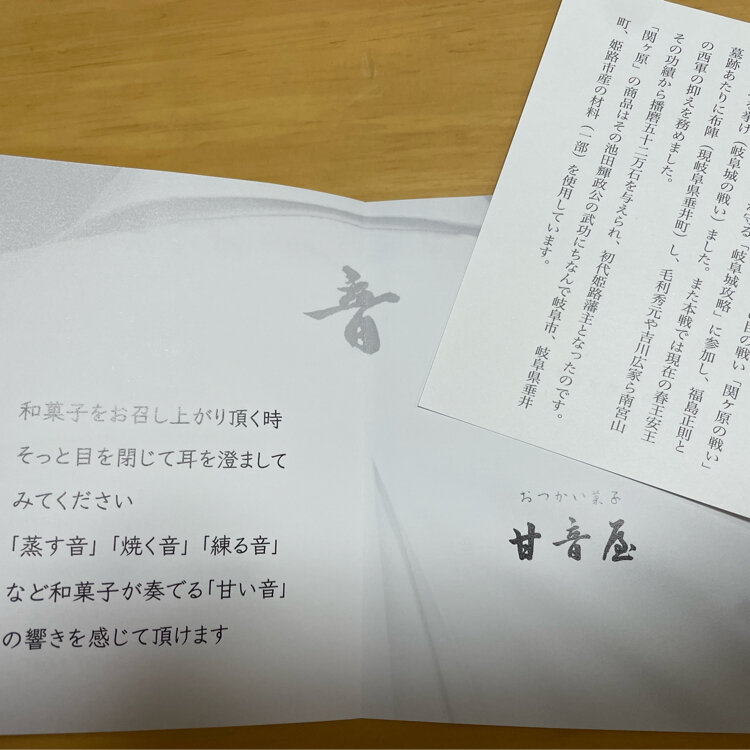 音
和菓子をお召し上がり頂く時
そっと目を閉じて耳を澄まして
みてください
「蒸す音」「焼く音」「練る音」
など和菓子が奏でる「甘い音」
の響きを感じて頂けます
おつかい菓子
甘音屋
日の戦い「関ヶ原の戦い」
守る「岐阜城攻略」に参加し、福島正則と
を挙げ(岐阜城の戦い)ました。また本戦では現在の春王安王
墓跡あたりに布陣(現岐阜県垂井町)し、毛利秀元や吉川広家ら南宮山
の西軍の抑えを務めました。
その功績から播磨五十二万石を与えられ、初代姫路藩主となったのです。
「関ヶ原」の商品はその池田輝政公の武功にちなんで岐阜市、岐阜県垂井
町、姫路市産の材料(一部)を使用しています。